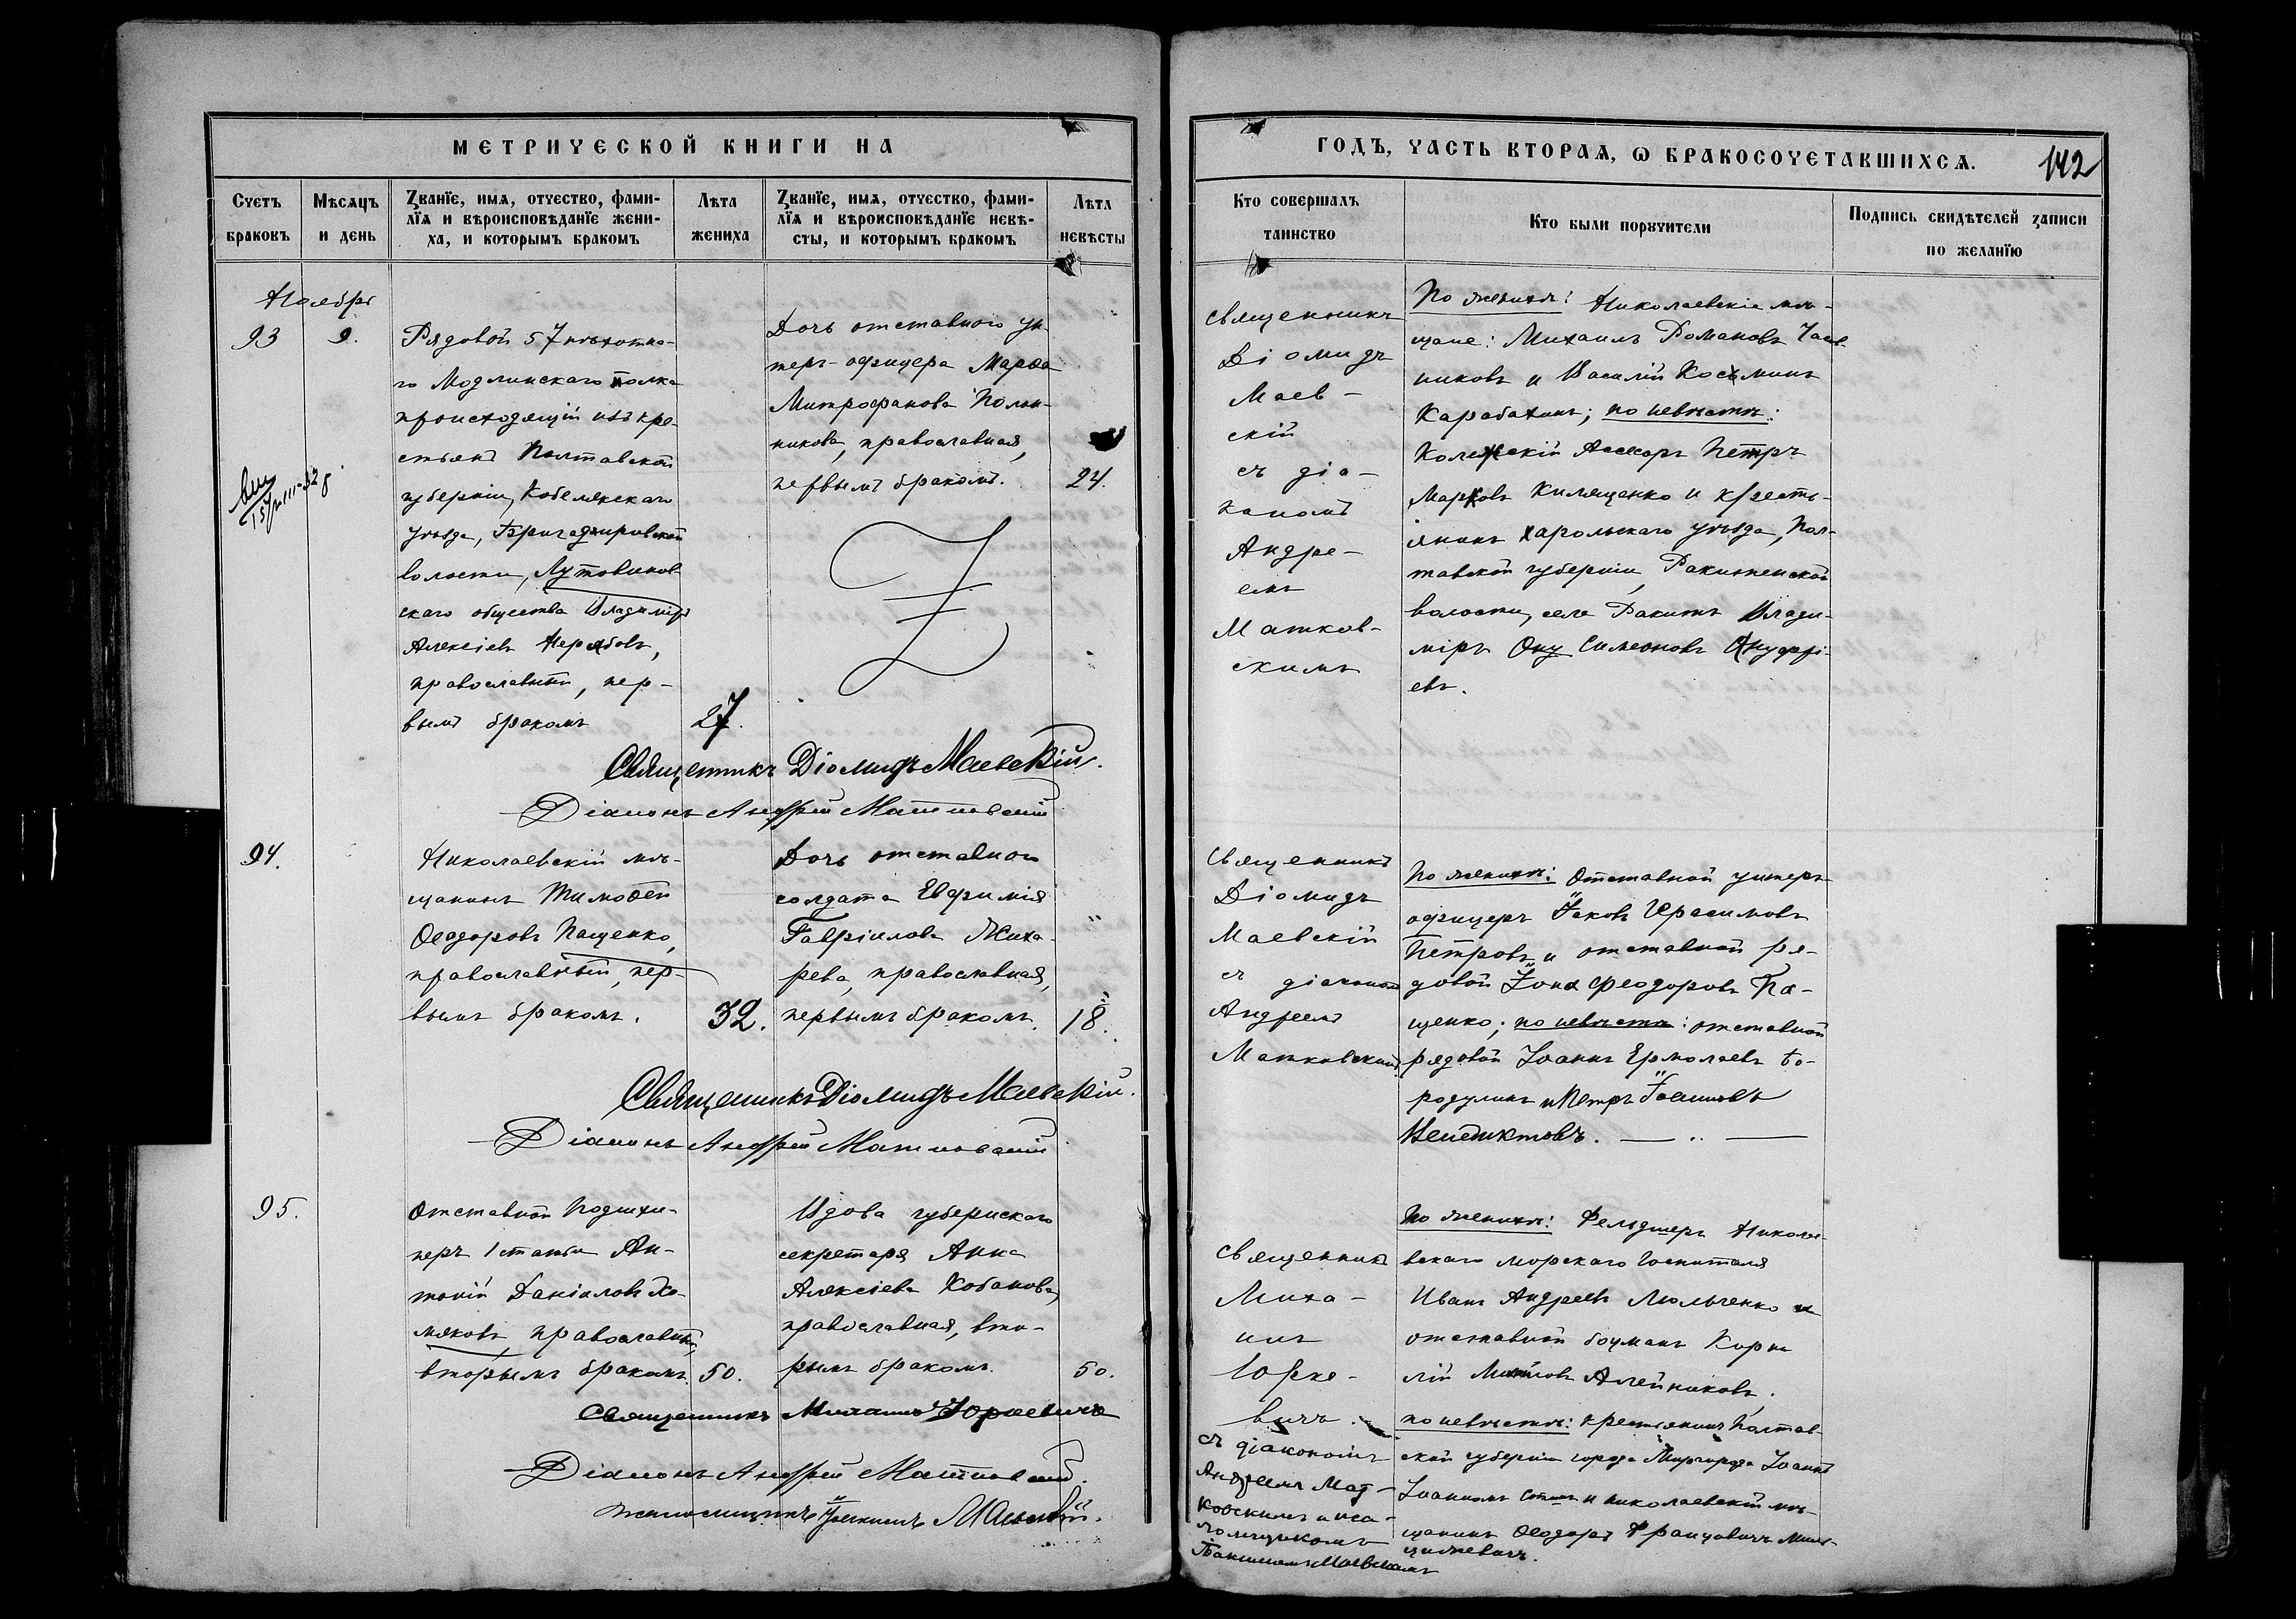 МЕТРИЧЕСКОЙ КНИГИ НА
Счетъ браковъ
Мѣсяцъ и день
Званїе, имѧ, отчество, фами-
лїѧ и вѣроисповѣданїе жени-
ха, и которымъ бракомъ
Лѣта жениха
Званїе, имѧ, отчество, фами-
лїѧ и вѣроисповѣданїе невѣ-
сты, и которымъ бракомъ
Лѣта невѣсты
Ноябрь
93
9.
Рядовой 57 пѣхотна-
го Модлинскаго полка
происходящій изъ кре-
стьянъ Полтавской
губерніи, Кобелякскаго
уѣзда, Бригадировской
волости, Лутовинов-
скаго общества Владиміръ
Алексіевъ Нерябовъ,
православный, пер-
вымъ бракомъ
27.
Дочь отставного ун-
теръ-офицера Марѳа
Митрофанова Полян-
никова, православная,
первымъ бракомъ.
24.
Священникъ Діомидъ Маевскій.
Діаконъ Андрей Матковскій
94.
Николаевскій мѣ-
щанинъ Тимоѳей
Ѳеодоровъ Пащенко,
православный, пер-
вымъ бракомъ.
32.
Дочь отставного
солдата Евфимія
Гавріилова Жиха-
рева, православная,
первымъ бракомъ.
18.
Священникъ Діомидъ Маевскій.
Діаконъ Андрей Матковскій
95.
Отставной подшки-
перъ 1 статьи Ан-
тоній Даніиловъ Хо-
мяковъ, православный,
вторымъ бракомъ.
50.
Вдова губернскаго
секретаря Анна
Алексіева Кобанова,
православная, вто-
рымъ бракомъ.
50.
Священникъ Михаилъ Юркевичъ
Діаконъ Андрей Матковскій.
Псаломщикъ Маевскій.
ГОДЪ, ЧАСТЬ ВТОРАѦ, Ѡ БРАКОСОЧЕТАВШИХСѦ.
142
Кто совершалъ
таинство
Кто были порꙋчители
Подпись свидѣтелей записи
по желанїю
Священникъ
Діомидъ
Маев-
скій
съ діа-
кономъ
Андре-
емъ
Матков-
скимъ
По женихѣ: Николаевскіе мѣ-
щане: Михаилъ Романовъ Час-
никовъ и Василій Косьминъ
Карабахинъ; по невѣстѣ:
Колежскій Ассесоръ Петръ
Марковъ Килященко и кресть-
янинъ Харольскаго уѣзда, Пол-
тавской губерніи, Ракитенской
волости, села Ракитъ Влади-
міръ Ону Симеоновъ Ануфрі-
евъ.
Священникъ
Діомидъ
Маевскій
съ діакономъ
Андреемъ
Матковскимъ
По женихѣ: Отставной унтеръ-
офицеръ Іаковъ Герасимовъ
Петровъ и отставной ря-
довой Іона Феодоровъ Па-
щенко; по невѣстѣ: отставной
рядовой Іоаннъ Ермолаевъ Бо-
родулинъ и Петръ Іоанновъ
Венедиктовъ.
Священникъ
Миха-
илъ
Юрке-
вичъ
съ діакономъ
Андреемъ Мат-
ковскимъ и пса-
ломщикомъ
Маевскимъ
По женихѣ: Фельдшеръ Николае-
вскаго морского Госпиталя
Иванъ Андреевъ Мольченко и
отставной боцманъ Корни
лій Алейниковъ.
по невѣстѣ: крестьянинъ Полтав-
ской губерніи города Миргорода Іоаннъ
Іоанновъ и Николаевскій мѣ-
щанинъ Ѳеодоръ Францовичъ